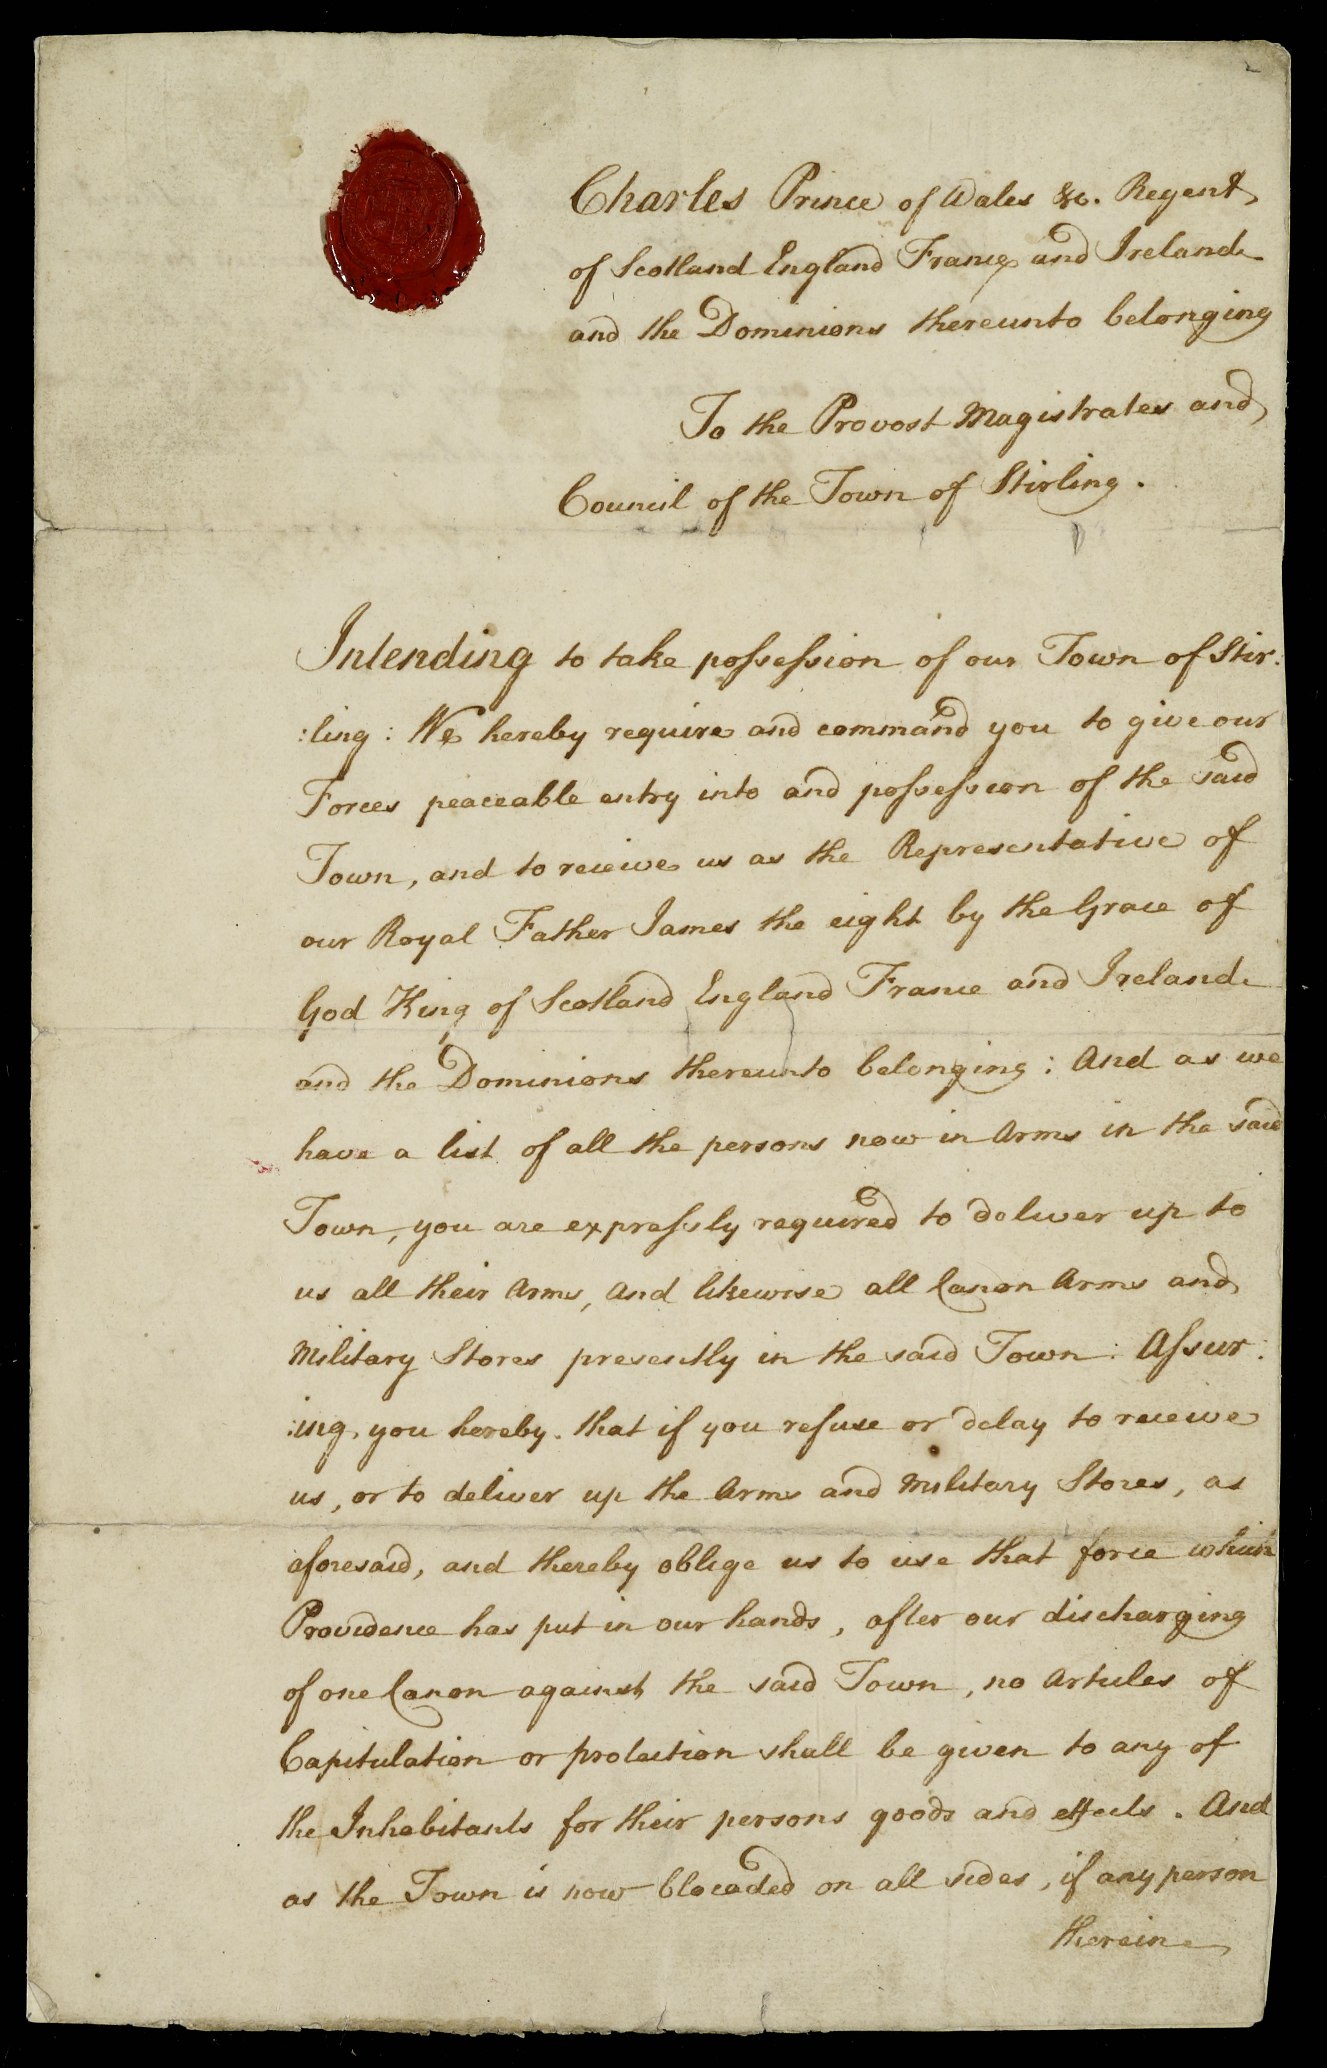 Charles Prince of Wales &c. Regent
of Scotland England France and Ireland
and the Dominions thereunto belonging
To the Provost Magistrates and
Council of the Town of Stirling.
Intending to take possession of our Town of Stir:
:ling: We hereby require and command you to give our
Forces peaceable entry into and possession of the said
Town, and to receive us as the Representative of
our Royal Father James the eight by the Grace of
God King of Scotland England France and Ireland
and the Dominions thereunto belonging: And as we
have a list of all the persons now in Arms in the said
Town, you are expressly required to deliver up to
us all their Arms, and likewise all Canon Arms and
Military Stores presently in the said Town: Assur:
:ing you hereby. that if you refuse or delay to receive
us, or to deliver up the Arms and Military Stores, as
aforesaid, and thereby oblige us to use that force which
Providence has put in our hands, after our discharging
of one Canon against the said Town, no Articles of
Capitulation or protection shall be given to any of
the Inhabitants for their persons goods and effects. And
as the Town is now blocaded on all sides, if any person
therein